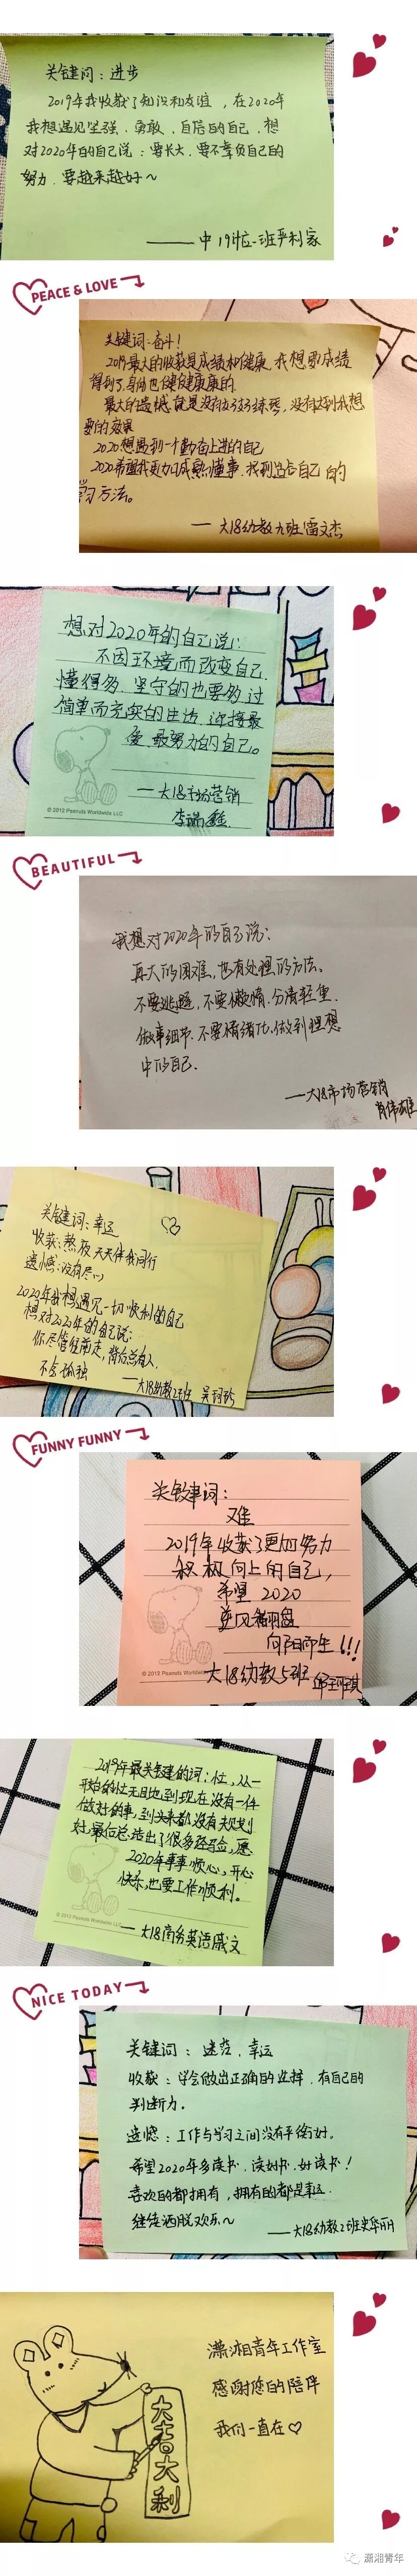 关键词：进步
2019年我收获了知识和友谊，在2020年
我想遇见坚强、勇敢、自信的自己，想
对2020年的自己说：要长大，要不辜负自己的
努力，要越来越好～
PEACE & LOVE
关键词：奋斗！
2019最大的收获是成绩和健康，我想要的成绩
得到了，身体也健健康康的。
最大的遗憾就是没有好好练琴，没有达到我想
要的效果
2020想遇到一个勤奋上进的自己
2020希望我更加成熟懂事，找到适合自己的
学习方法。
— 大18幼教九班雷文杰
想对2020年的自己说：
不因环境而改变自己，
懂得多，坚守的也要多，过
简单而充实的生活，迎接最
努力的自己。
© 2012 Peanuts Worldwide LLC
— 大18市场营销
BEAUTIFUL
我想对2020年的自己说：
再大的困难，也有处理的方法。
不要逃避，不要懒惰，分清轻重，
做事细节，不要情绪化，做到理想
中的自己。
—大18市场营销
肖伟雄
关键词：幸运
收获：熬夜天天伴我同行
遗憾：没有尽
2020年我想遇见一切顺利的自己
想对2020年的自己说：
你尽管往前走，背后总有人，
不会孤独
FUNNY FUNNY
关键词：
难
2019年收获了更加努力
积极向上的自己，
希望 2020
逆风翻盘
向阳而生!!!
© 2012 Peanuts Worldwide
大18幼教5班
2019年最关键的词：忙，从一
开始的忙无目地，到现在没有一件
做好的事，到头来都没有规划
好，最后总结出了很多经验，愿
2020年事事顺心，开心
快乐，也要工作顺利。
© 2012 Peanuts Worldwide LLC
— 大18商务英语戚文
NICE TODAY
关键词：迷茫、幸运
收获：学会做出正确的选择，有自己的
判断力。
遗憾：工作与学习之间没有平衡好。
希望2020年多读书，读好书，好读书！
喜欢的都拥有，拥有的都是幸运
继续洒脱欢乐～
——大18幼教2班史华丽
大吉大利
潇湘青年工作室
感谢您的陪伴
我们一直在♡
潇湘青年